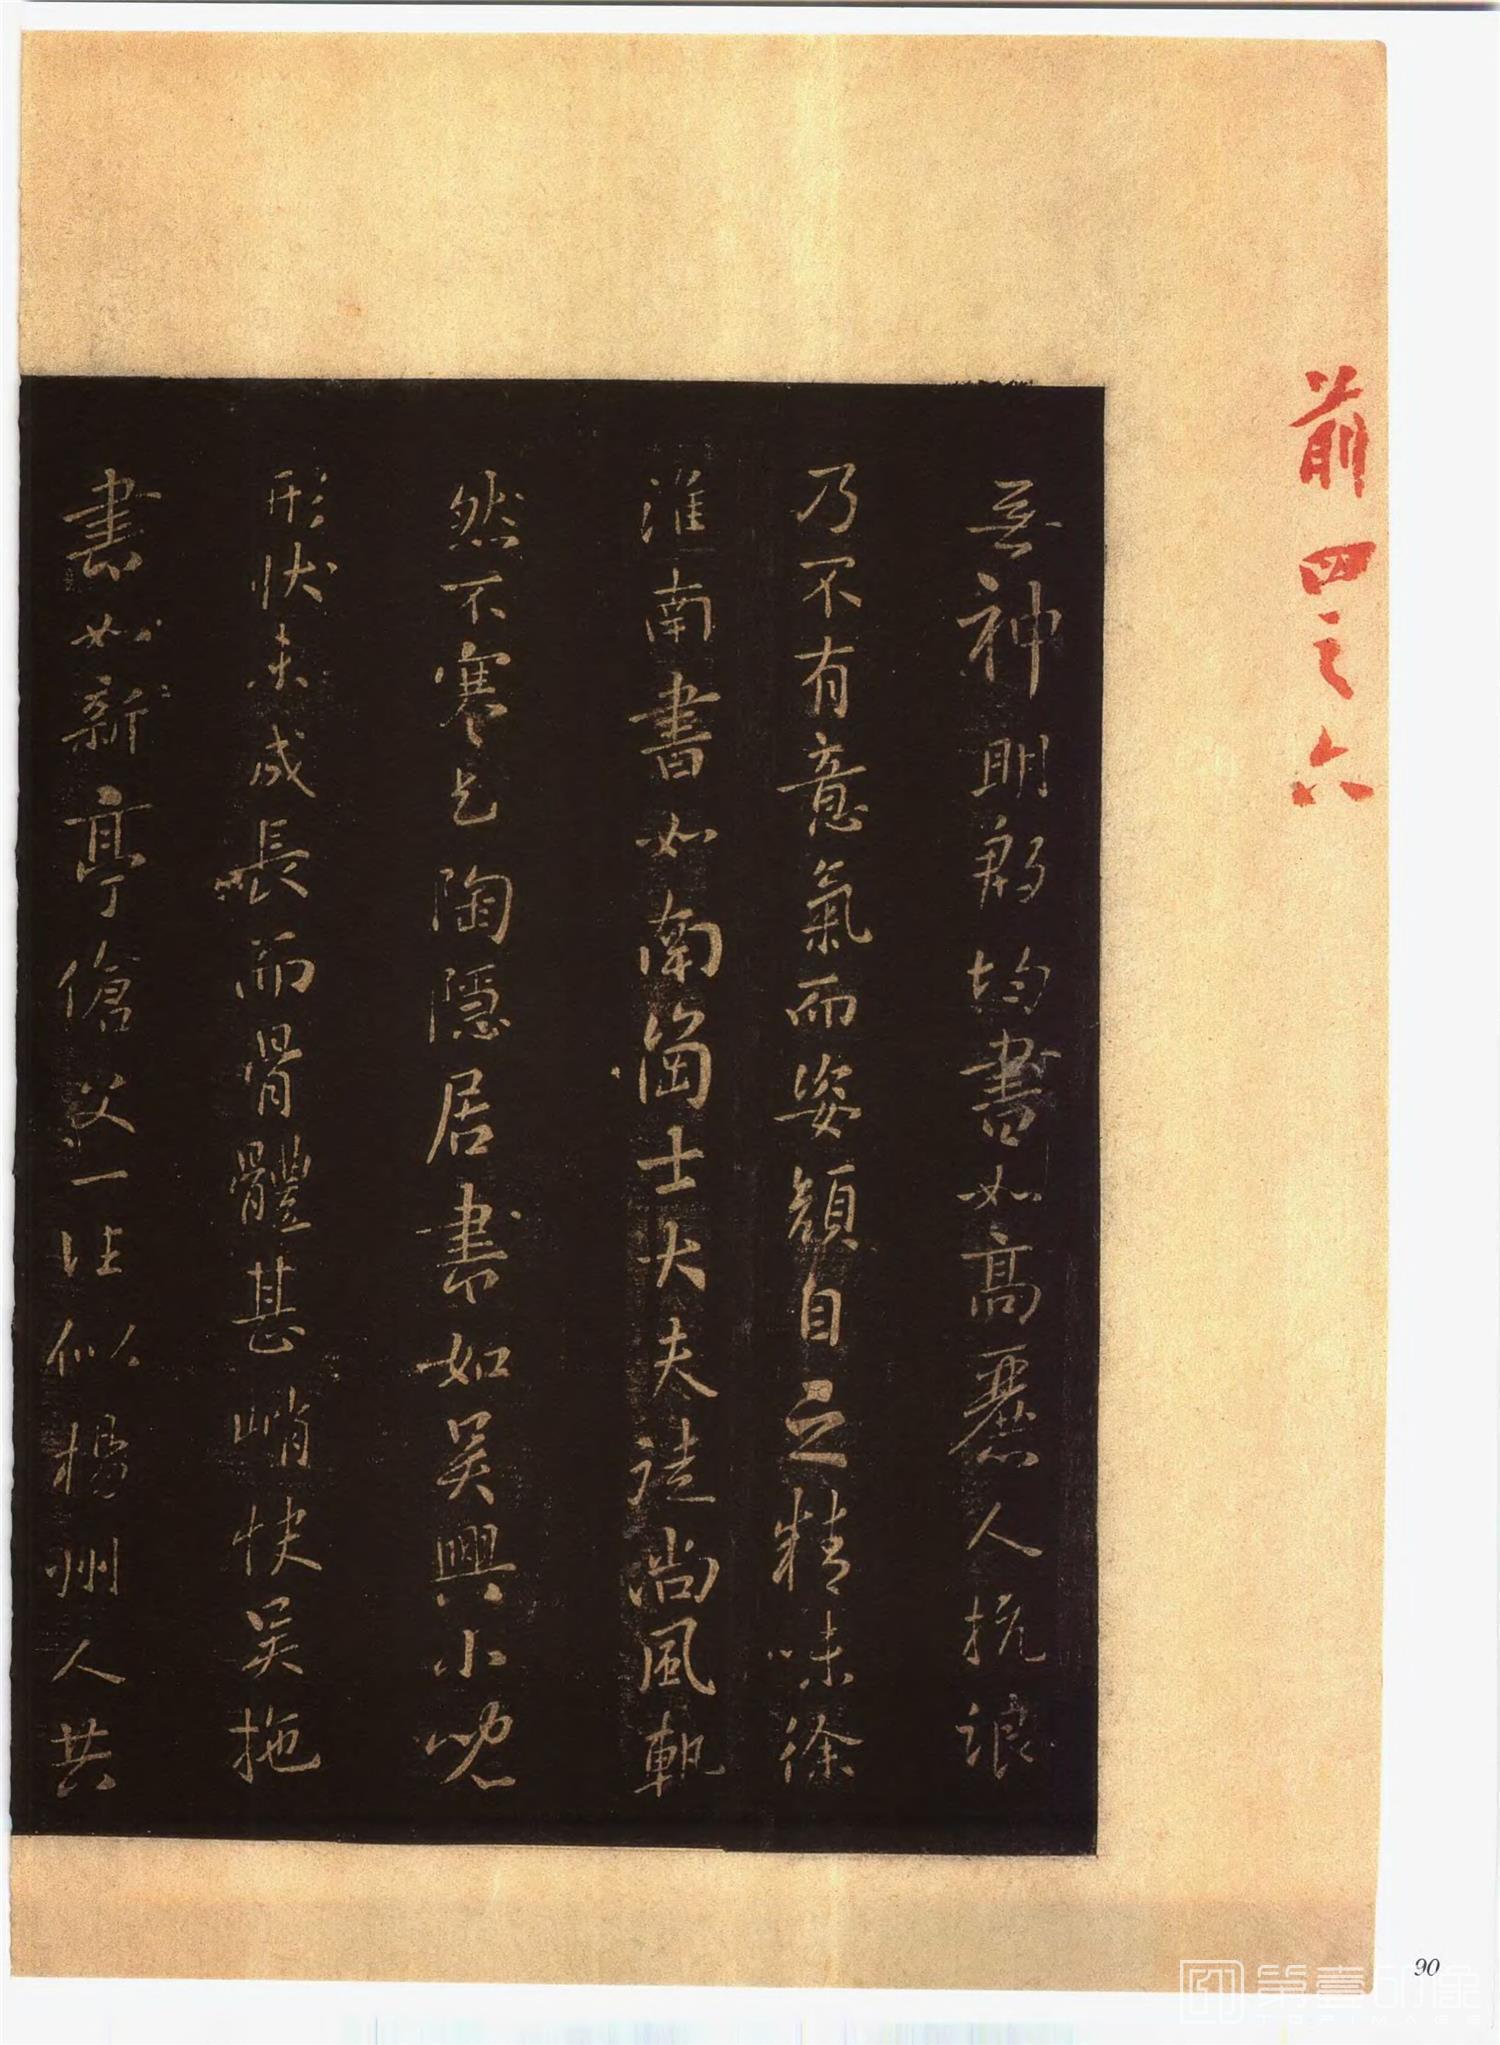 前四之六
無神明殷均書如高麗人抗浪
乃不有意氣而姿顔自之精味徐
淮南書如南崗士大夫徒尚風軌
然不寒乞陶隱居書如吴興小兒
形状未成長而骨體甚峭快吴拖
書如新亭傖父一往似楊州人共
90
第壹印像
TOPIMAGE